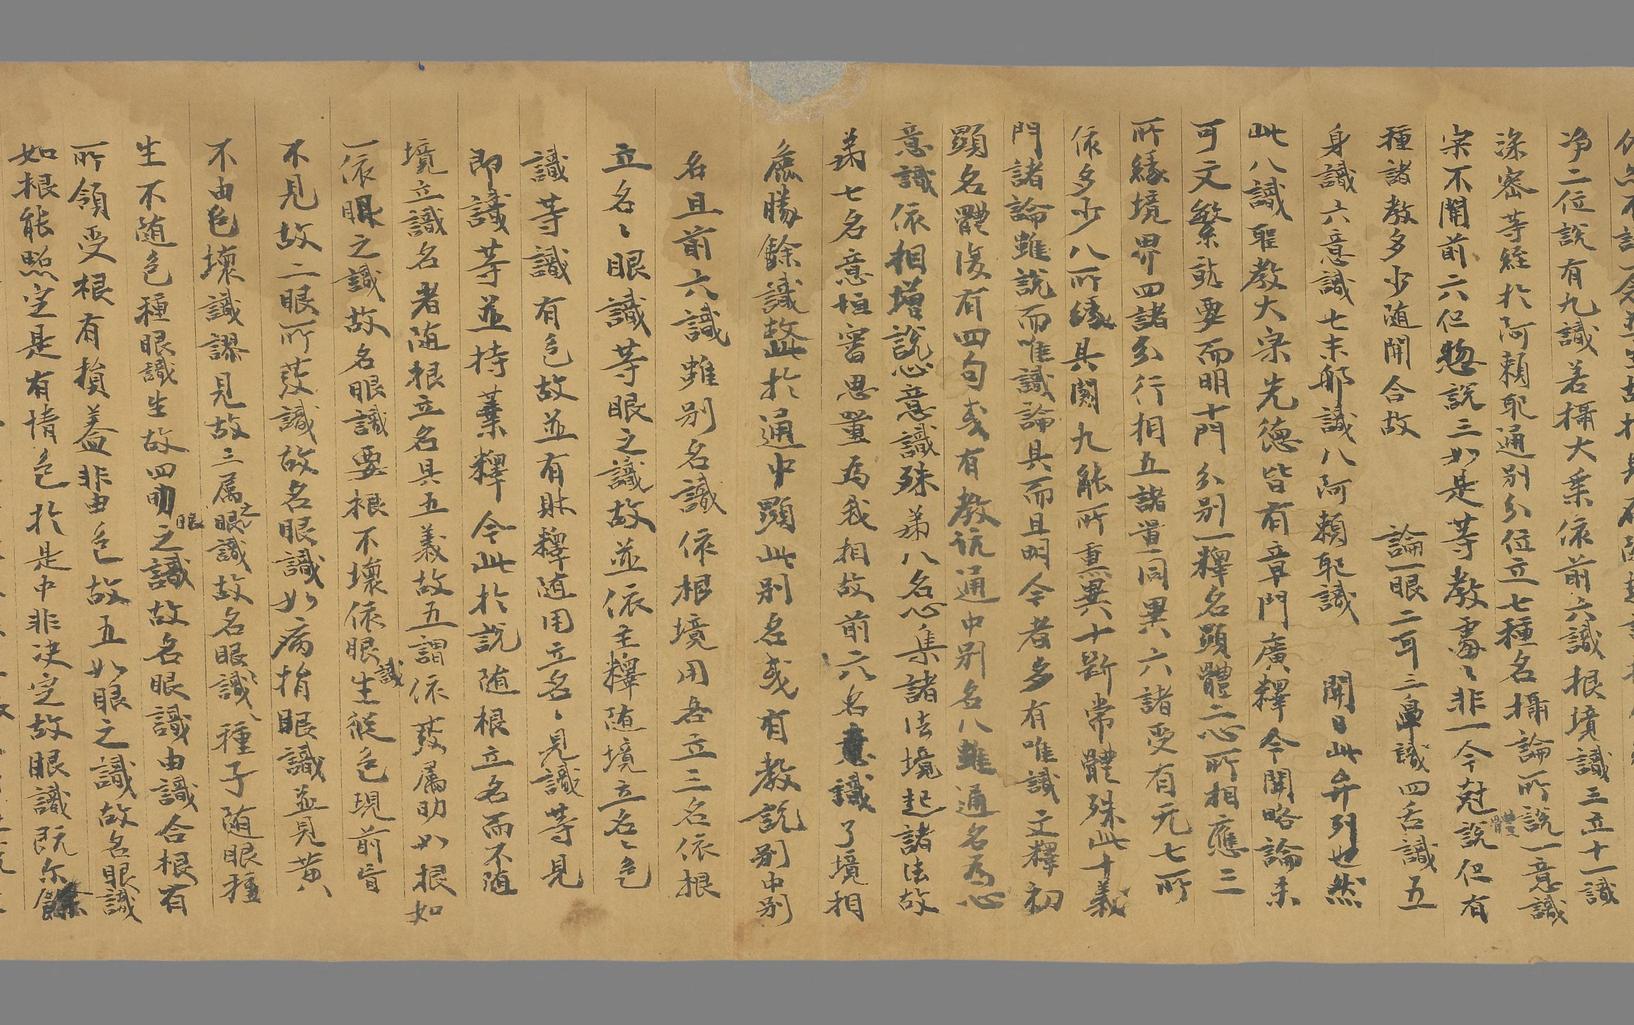 净二位說有九識若攝大乘依前六識根境識三立十一識
深密等經於阿賴耶通別分位立七種名攝論所說一意識
宗不開前六但惣說三如是等教處〻非一今冠體說但有
種諸教多少随開合故
論一眼二耳三鼻識四舌識五
身識六意識七末那識八阿賴耶識
開曰此弁列也然
此八識聖教大宗先德皆有章門廣釋今聞略論未
可文繁就要而明十門分別一釋名顯體二心所相應三
所緣境界四諸分行相五諸量同異六諸受有无七所
依多少八所緣具闕九能所熏異十斷常體殊此十義
門諸論雖說而唯識論具而且明今者多有唯識文釋初
顯名體復有四句或有教說通中別名八雖通名為心
意識依相增說心意識殊第八名心集諸法境起諸法故
第七名意恒審思量為我相故前六名意識了境相
麁勝餘識故此於通中顯此別名或有教說別中別
名且前六識雖別名識依根境用各立三名依根
立名〻眼識等眼之識故並依主釋随境立名〻色
識等識有色故並有財釋随用立名〻見識等見
即識等並持業釋今此於說随根立名而不随
境立識名者随根立名具五義故五謂依發屬助如根如
一依眼之識故名眼識要根不壞依眼識生從色現前盲
不見故二眼所發識故名眼識如病損眼識並見黃
不由色壞識謬見故三屬眼之識故名眼識〻種子随眼種
生不随色種眼識生故四助眼之識故名眼識由識合根有
所領受根有損益非由色故五如眼之識故名眼識
如根能照定是有情色於是中非決定故眼識既尒餘